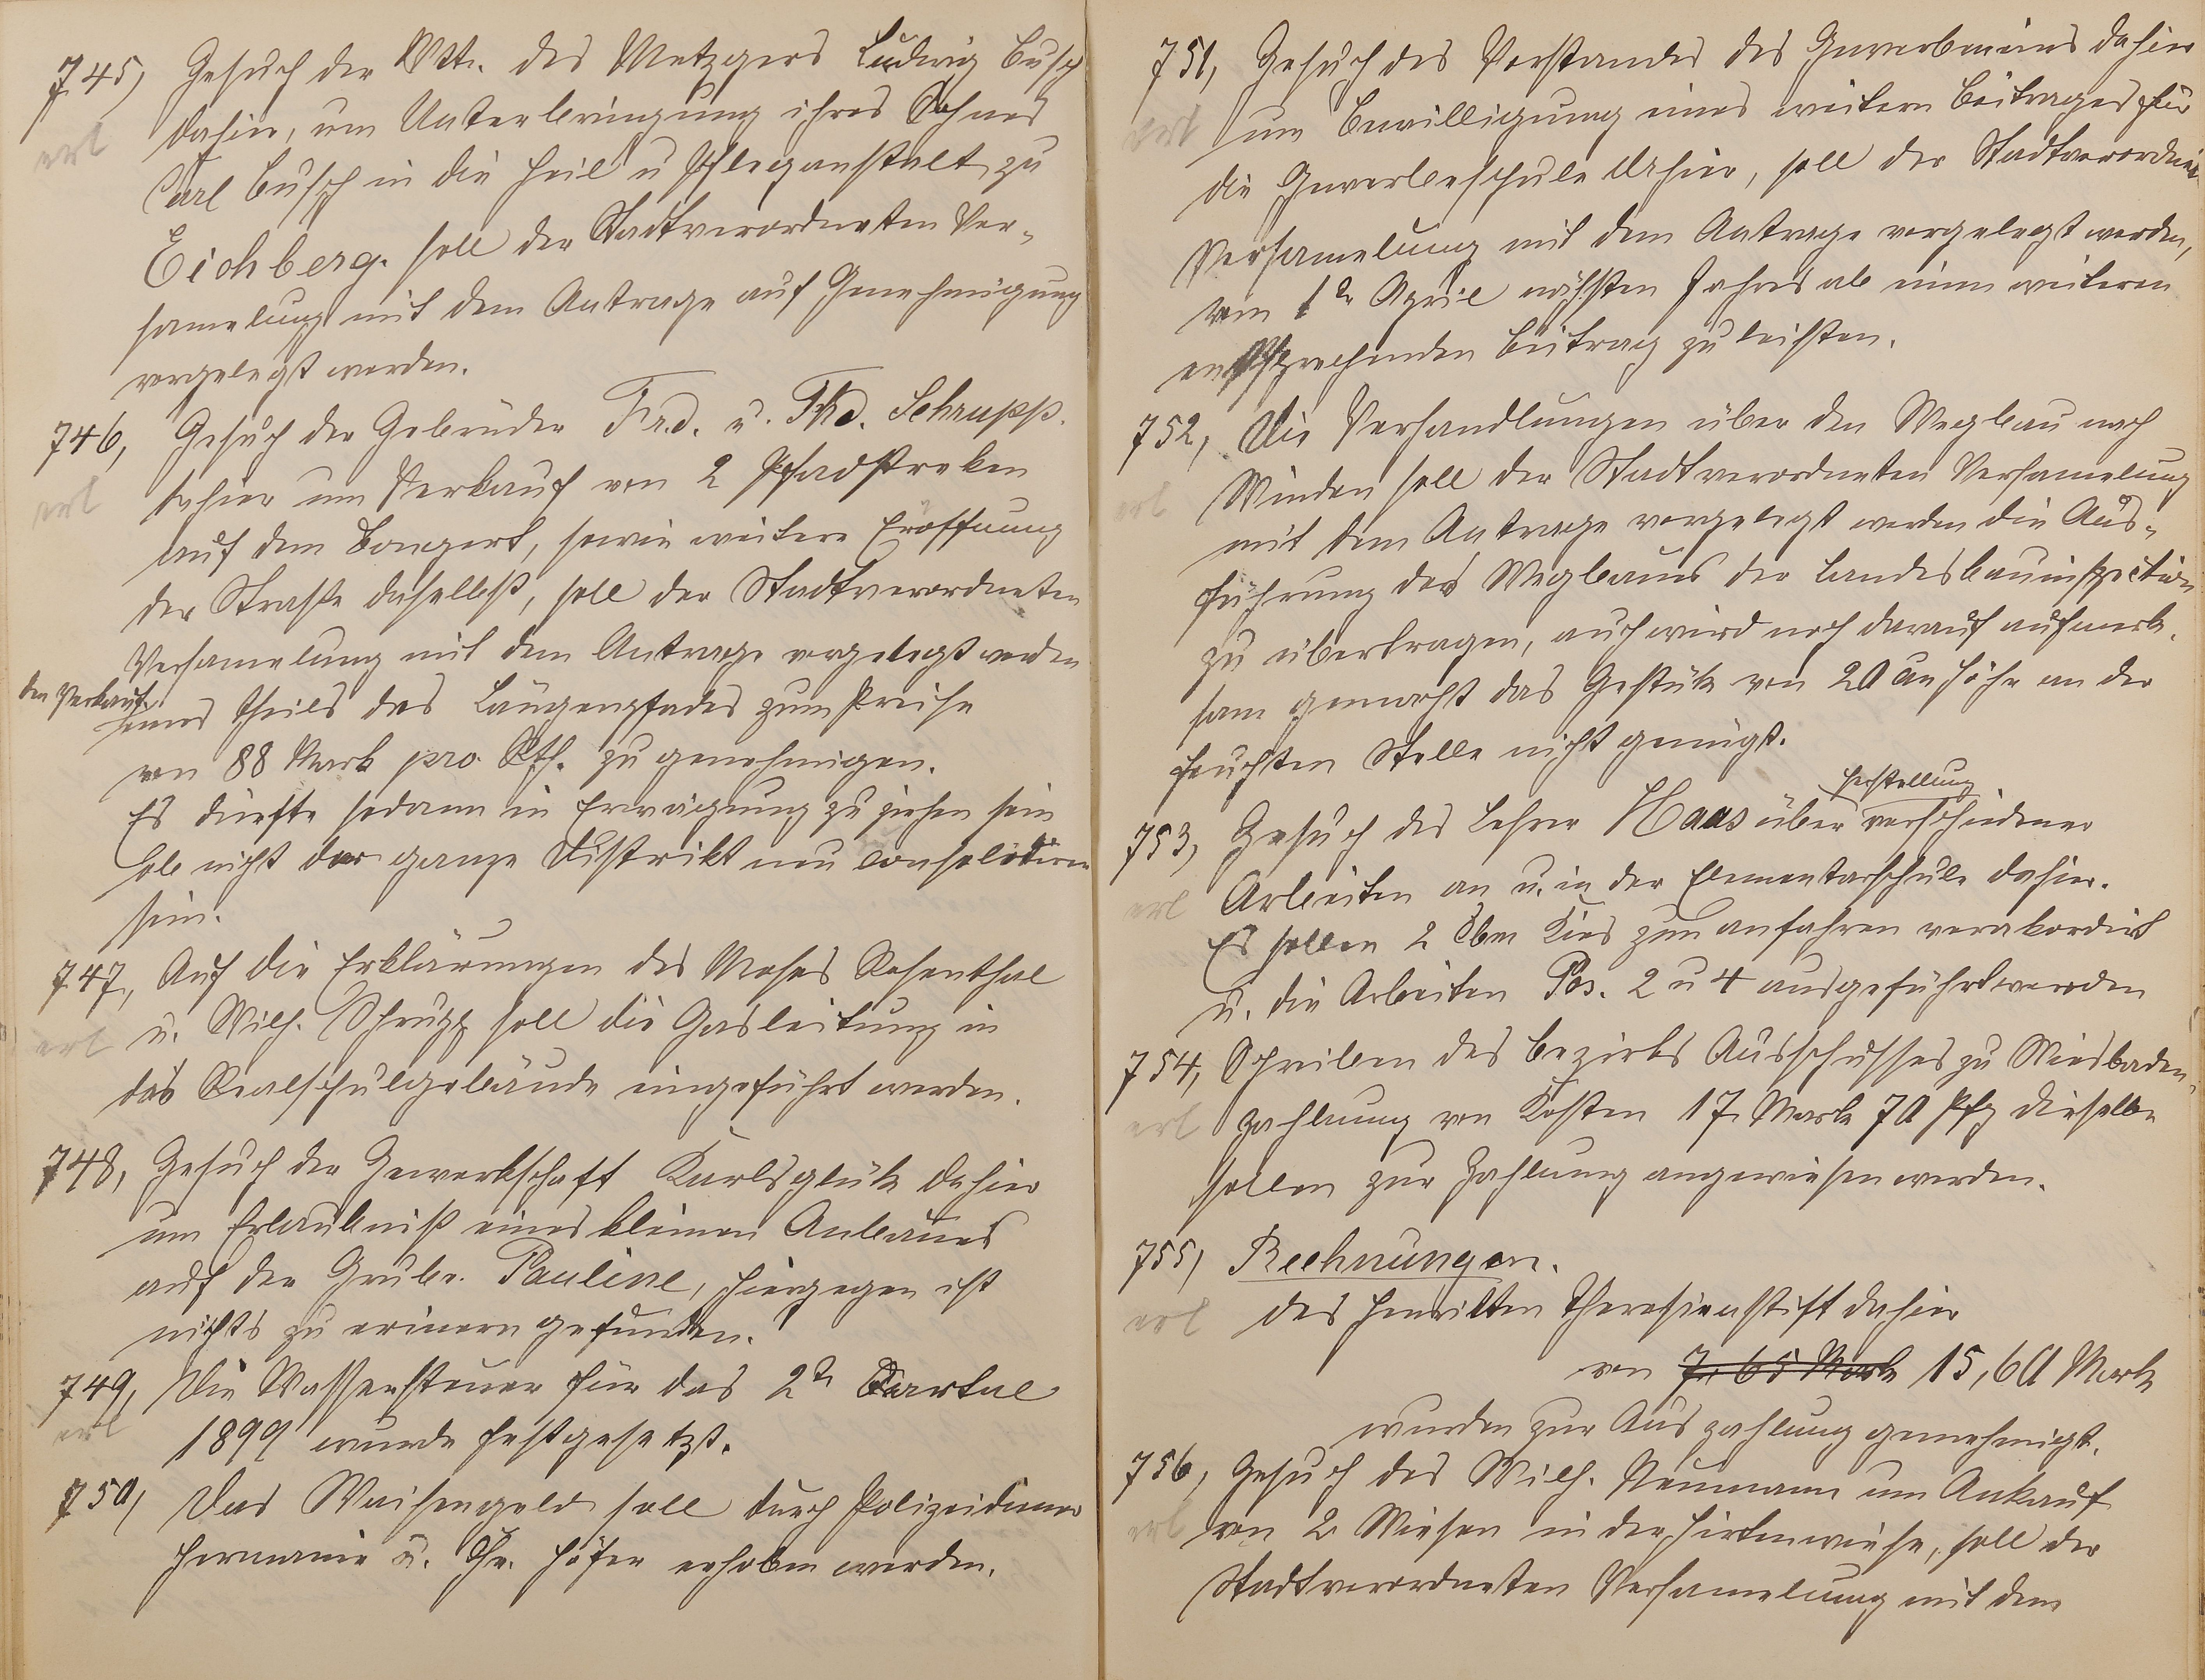 745) Gesuch der Wtt. des Metzgers Ludwig Busch
dahier, um Unterbringung ihres Sohnes
erl
Carl Busch in die Heil u Pfleganstalt zu
Eichberg. soll der Stadtverordneten Ver-
samelung mit dem Antrage auf Genehmigung
vorgelegt werden.
746, Gesuch der Gebrüder Frd. u. Thd. Schrupp.
erl
dahier um Verkauf von 2 Pfadstreken
auf dem Bongert, sowie weitere Eröffnung
der Straße daselbst, soll der Stadtverordneten
Versamelung mit dem Antrage vorgelegt werden
den Verkauf
eines Theils des Längenpfades zum Preise
von 88 Mark pro Rth. zu genehmigen.
Es dürfte sodann in Erwägung zu ziehen sein
ob nicht der ganze Distrikt neu consolidiren
sein.
747, Auf die Erklärungen des Moses Rosenthal
erl
u. Wilh. Schrupp soll die Gasleitung in
das Realschulgebäude eingeführt werden.
748, Gesuch der Gewerkschaft Karlsglük dahier
um Erlaubniß eines kleinen Anbaues
auf der Grube. Pauline, hiergegen ist
nichts zu erinern gefunden.
749, Die Wassersteuer für das 2te Quartal
erl
1899 wurde festgesetzt.
750, Das Waisengeld soll durch Polizeidiener
Hermanie u. Chr. Höfer erhoben werden.
751, Gesuch des Vorstandes des Gewerbevereins dahier
erl
um Bewilligung eines weitern Beitrages für
die Gewerbeschule dahier, soll der Stadtverordneten
Versamelung mit dem Antrage vorgelegt werden,
vom 1te April nächsten Jahres ab einen weiteren
entsprechenden Beitrag zu leisten.
752, Die Verhandlungen über den Wegbau nach
erl
Winden soll der Stadtverordneten Versamelung
mit dem Antrage vorgelegt werden die Aus-
führung des Wegbaues der Landesbauinspection
zu übertragen, auch wird noch darauf aufmerk-
sam gemacht das Gestük von 20 cm Höhe an der
feuchten Stelle nicht genügt.
Herstellung
753, Gesuch des Lehrer Haas über verschiedener
erl
Arbeiten an u. in der Elementarschule dahier.
Es sollen 2 Cbm Kies zum anfahren verakordirt
u. die Arbeiten Pos. 2 u 4 ausgeführt werden
754, Schreiben des Bezirks Ausschusses zu Wiesbaden,
erl
zahlung von Kosten 17. Mark 70 Pfg dieselben
sollen zur Zahlung angewiesen werden.
755, Rechnungen.
erl
des Henritten Theresienstift dahier
von 7,65 Mark 15,60 Mark
wurden zur Auszahlung genehmigt.
756, Gesuch des Wilh. Neumann um Ankauf
erl
von 2 Wiesen in der Hirtenwiese, soll der
Stadtverordneten Versamelung mit dem